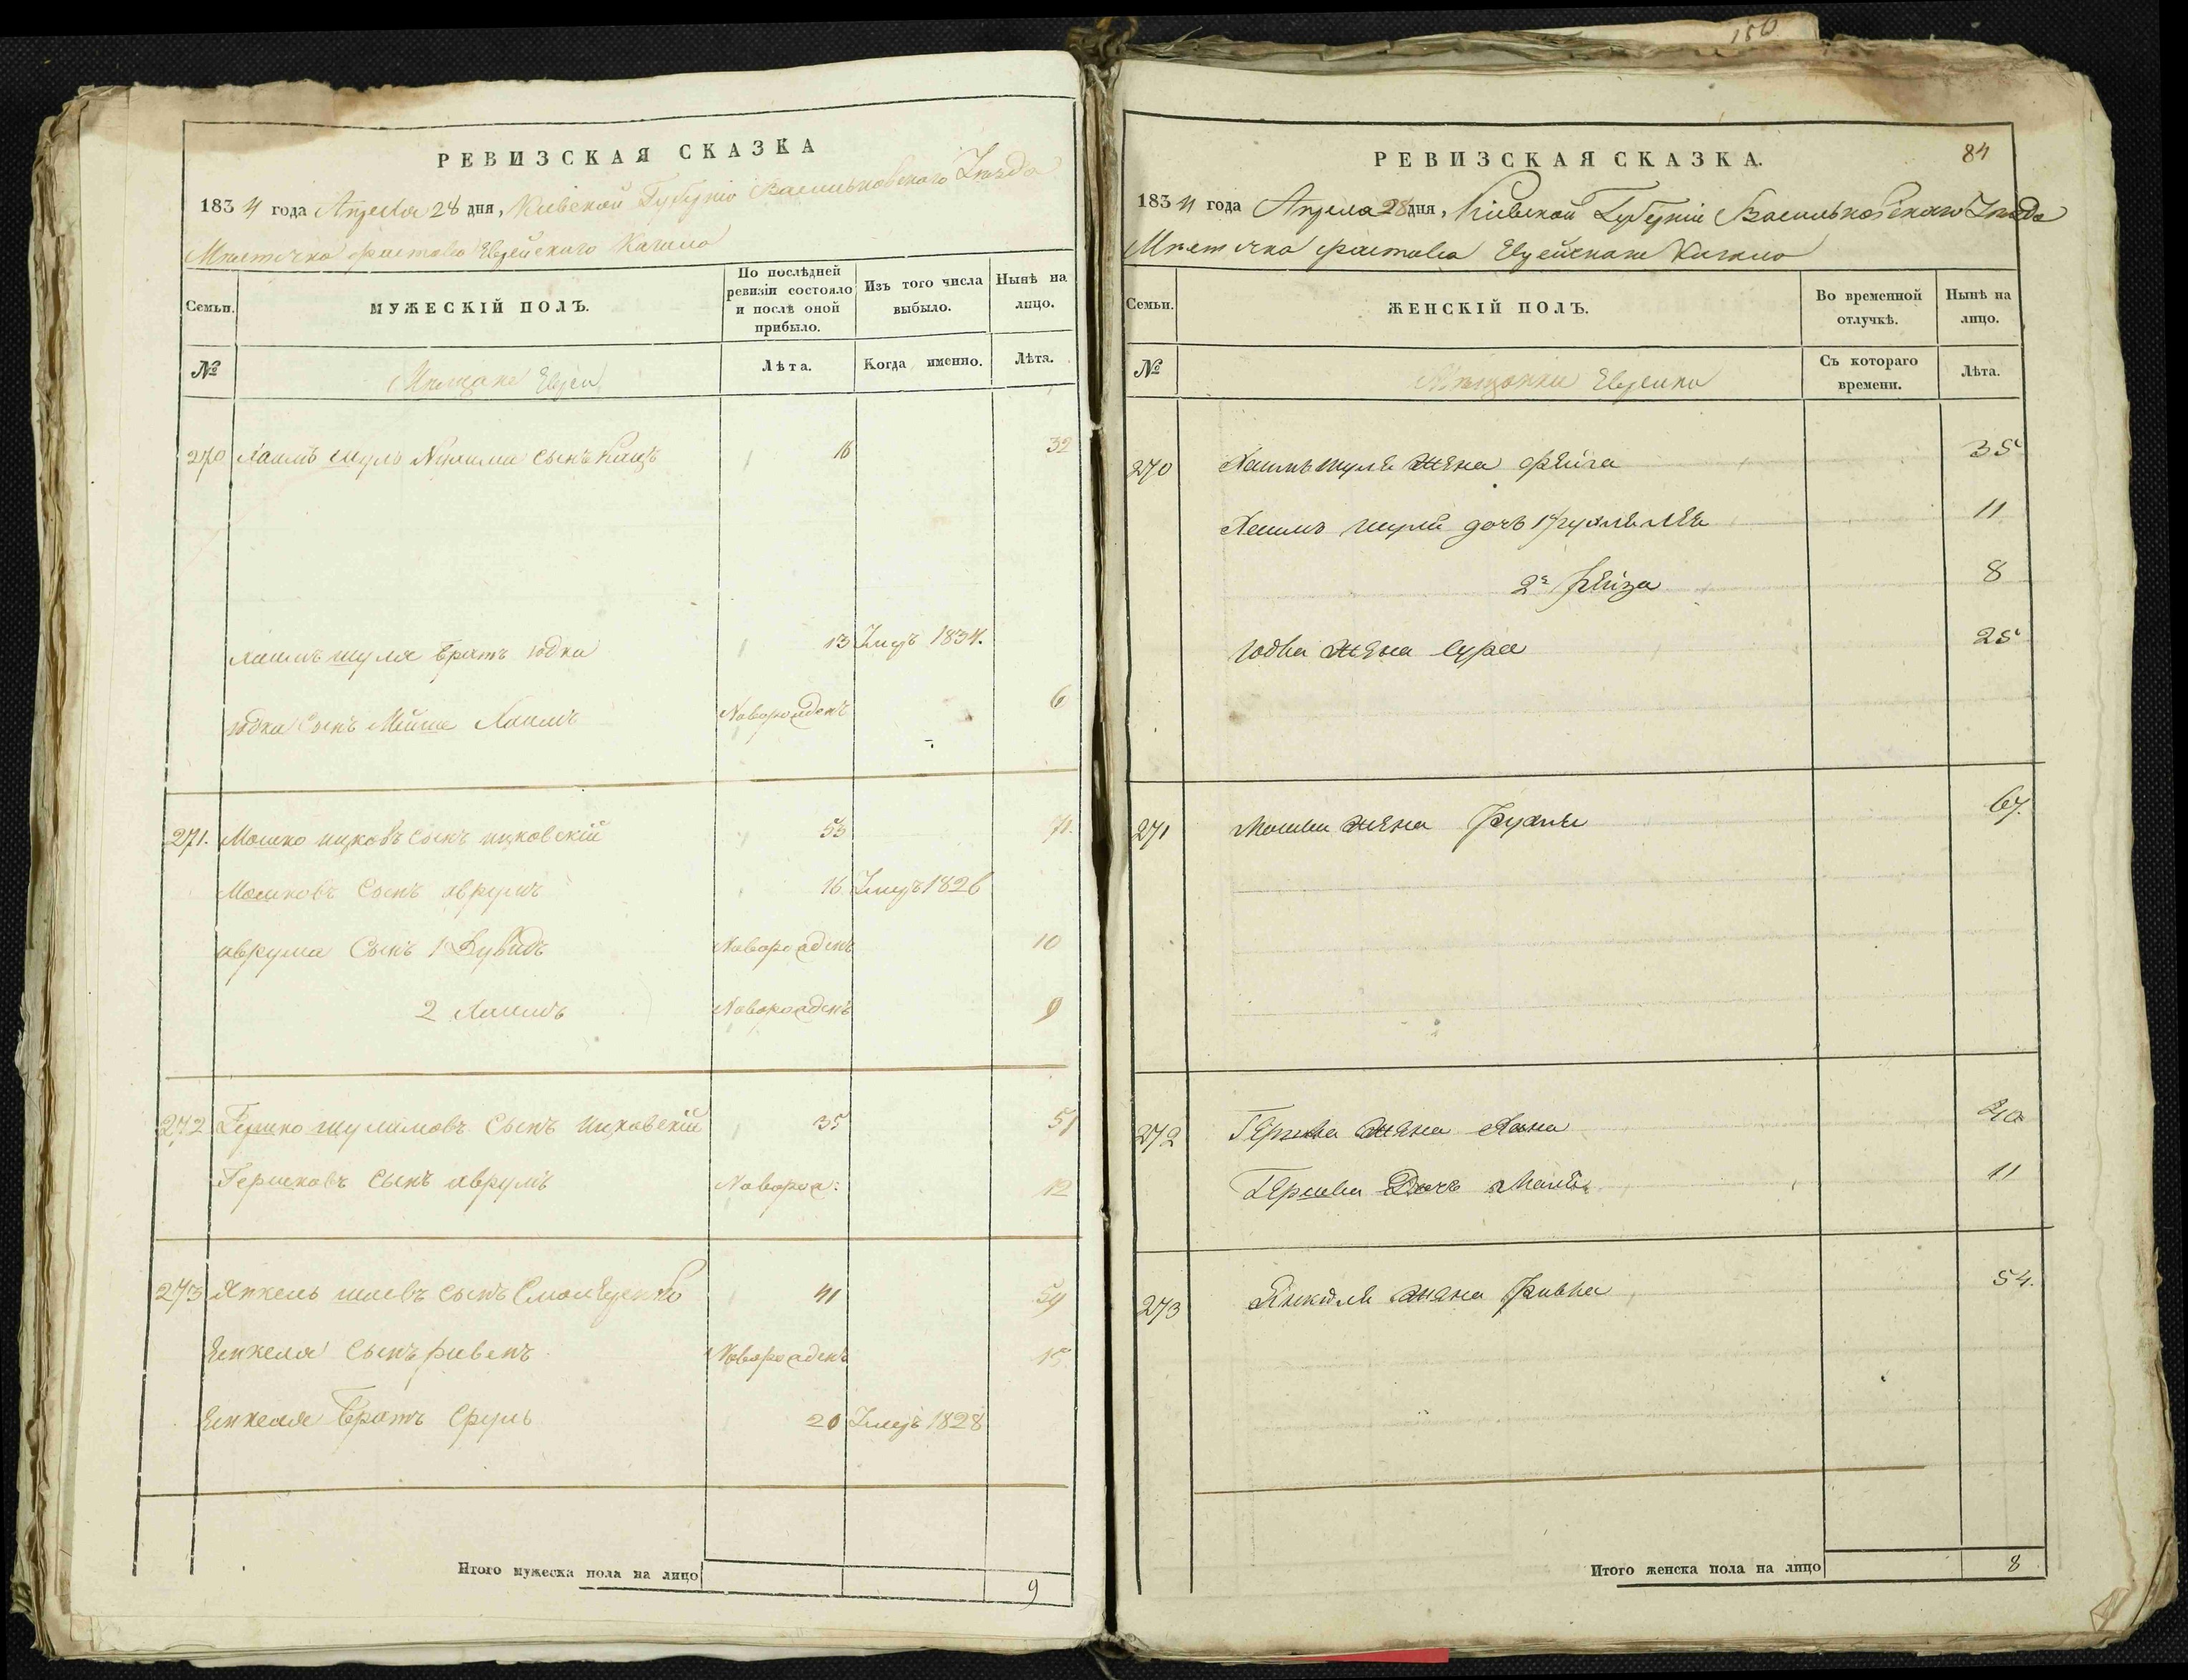 РЕВИЗСКАЯ СКАЗКА
1834 года Апреля 28 дня, Кіевской Губерніи Васильковскаго Уезда
Мѣстечка Фастова Еврейскаго Кагала
Семьи.
МУЖЕСКІЙ ПОЛЪ.
По послѣдней ревизіи состояло и послѣ оной прибыло.
Изъ того числа выбыло.
Нынѣ на лицо.
№
Мѣщане Евреи
Лѣта.
Когда именно.
Лѣта.
270 Хаимъ Шуль Нухима сынъ Кацъ 16 32
Хаимъ Шуля братъ Юдка 13 Умеръ 1834.
Юдка Сынъ Мойше Хаимъ Новорожденъ 6
271. Мошко Ицковъ Сынъ Ицковскій 53 71.
Мошковъ Сынъ Аврумъ 16 Умеръ 1826
Аврума Сынъ 1 Дувидъ Новорожденъ 10
2 Хаимъ Новорожденъ 9
272 Гершко Шулимовъ Сынъ Ицковскій 35 51
Гершковъ Сынъ Аврумъ Новорож: 12
273 Янкель Сынъ 41 59
Енкеля Сынъ Рувенъ Новорожденъ 15
Енкеля Братъ Сруль 20 Умеръ 1828
Итого мужеска пола на лицо 9
156
84
РЕВИЗСКАЯ СКАЗКА.
1834 года Апреля 28 дня, Кіевской Губерніи Васильковскаго Уезда
Мѣстечка Фастова Еврейскаго Кагала
Семьи.
ЖЕНСКІЙ ПОЛЪ.
Во временной отлучкѣ.
Нынѣ на лицо.
№
Мѣщанки Еврейки
Съ котораго времени.
Лѣта.
270 Хаимъ Шуля жена Фейга 35
Хаимъ Шули дочь 1я Рухля Лея 11
2я Рейза 8
Юдка жена Сура 25
271 Мошка жена Рухля 67.
272 Гершка жена Хана 40
Гершка Дочь 11
273 Янкеля жена Ривка 54.
Итого женска пола на лицо 8